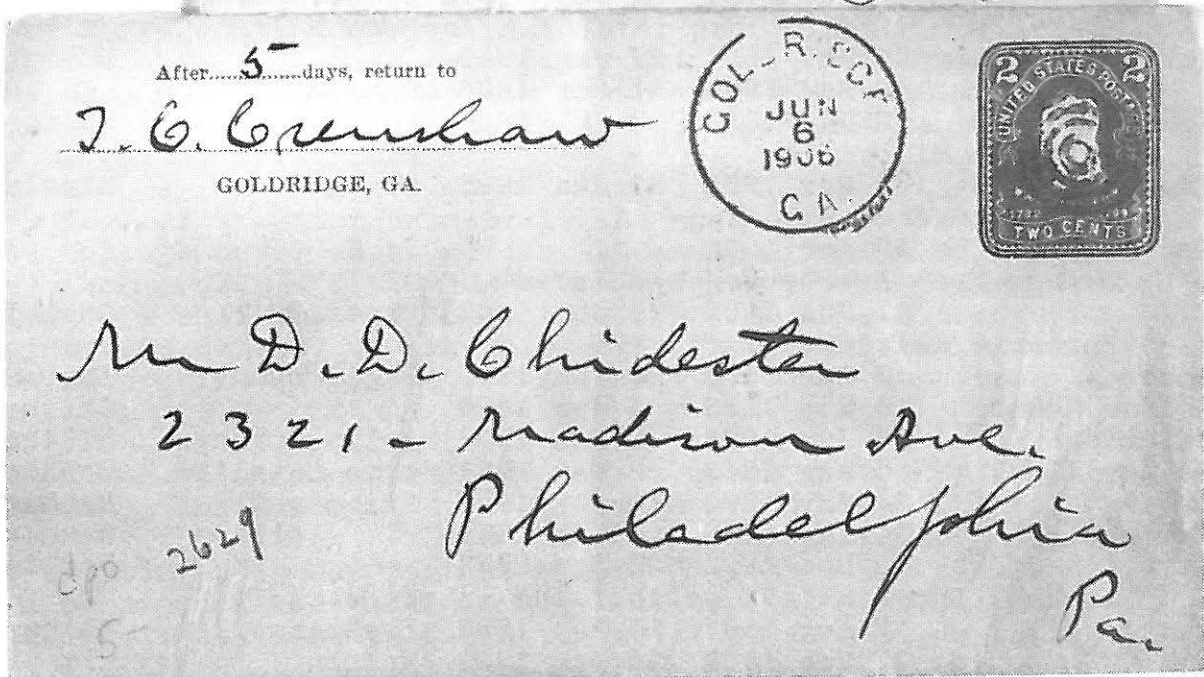 After.....5.....days, return to
T. C. Crenshaw
GOLDRIDGE, GA.
GOL RIDGE
JUN
6
1906
GA.
2 2
UNITED STATES POSTAGE
TWO CENTS
Mr D. D. Chidester
2321 - Madison Ave.
Philadelphia
Pa.
2629
dpo
5